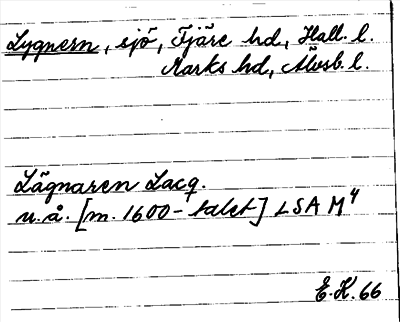 Lygnern, sjö, Fjäre hd, Hall. l.
Marks hd, Älvsb. l.
Lägnaren Lacq.
u.å. [m. 1600-talet] LSA M4
E.H. 66